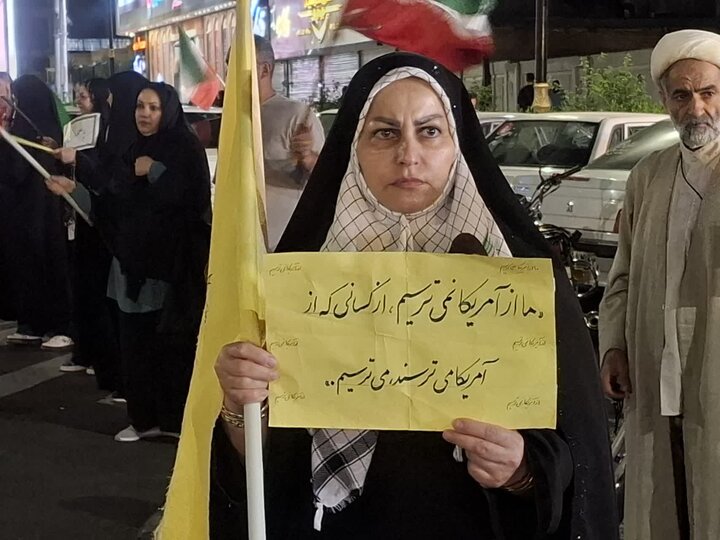 «ما از آمریکا نمی ترسیم، از کسانی که از
آمریکا می ترسند، می ترسیم.»